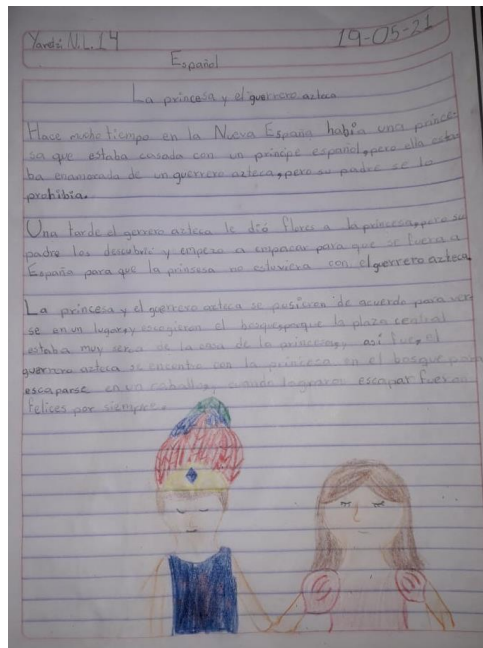 Yaretzi N.L.14 19-05-21
Español
La princesa y el guerrero azteca
Hace mucho tiempo en la Nueva España había una prince-
sa que estaba casada con un príncipe español, pero ella esta-
ba enamorada de un guerrero azteca, pero su padre se lo
prohibia.
Una tarde el gerrero azteca le dió flores a la princesa, pero su
padre los descubrió y empezo a empacar para que se fuera a
España para que la prinsesa no estuviera con el guerrero azteca.
La princesa y el guerrero azteca se pusieron de acuerdo para ver-
se en un lugar, y escogieron el bosque, porque la plaza central
estaba muy serca de la casa de la princesa, así fue, el
guerrero azteca se encontro con la princesa en el bosque para
escaparse en un caballo, cuando lograron escapar fueron
felices por siempre.